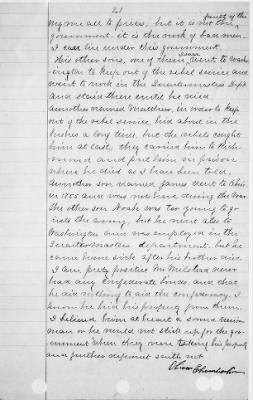 21
fault of the
my me all to pieces, but it is not the
government. it is the work of bad men.
I can live under this government.
His other sons, one of them, Isaac went to Wash-
ington to keep out of the rebel service and
went to work in the Quartermasters Dept
and staid there until he died
another named Matthew, in order to keep
out of the rebel service hid about in the
bushes a long time, but the rebels caught
him at last, they carried him to Rich-
mond and put him in prison
where he died as I have been told,
another son named James went to Ohio
in 1855 and was not here during the war
the other son Noah was too young to go
into the army, but he went also to
Washington and was employed in the
Quartermasters department. but he
came home sick after his brother died.
I am pretty positive Mr. never
had any Confederate bonds, and that
he did nothing to aid the confederacy. I
know he hid his property from them.
I believed him at heart a sound Union
man or he would not stick up for the gov-
ernment when they were taking his property
and further deponent saith not